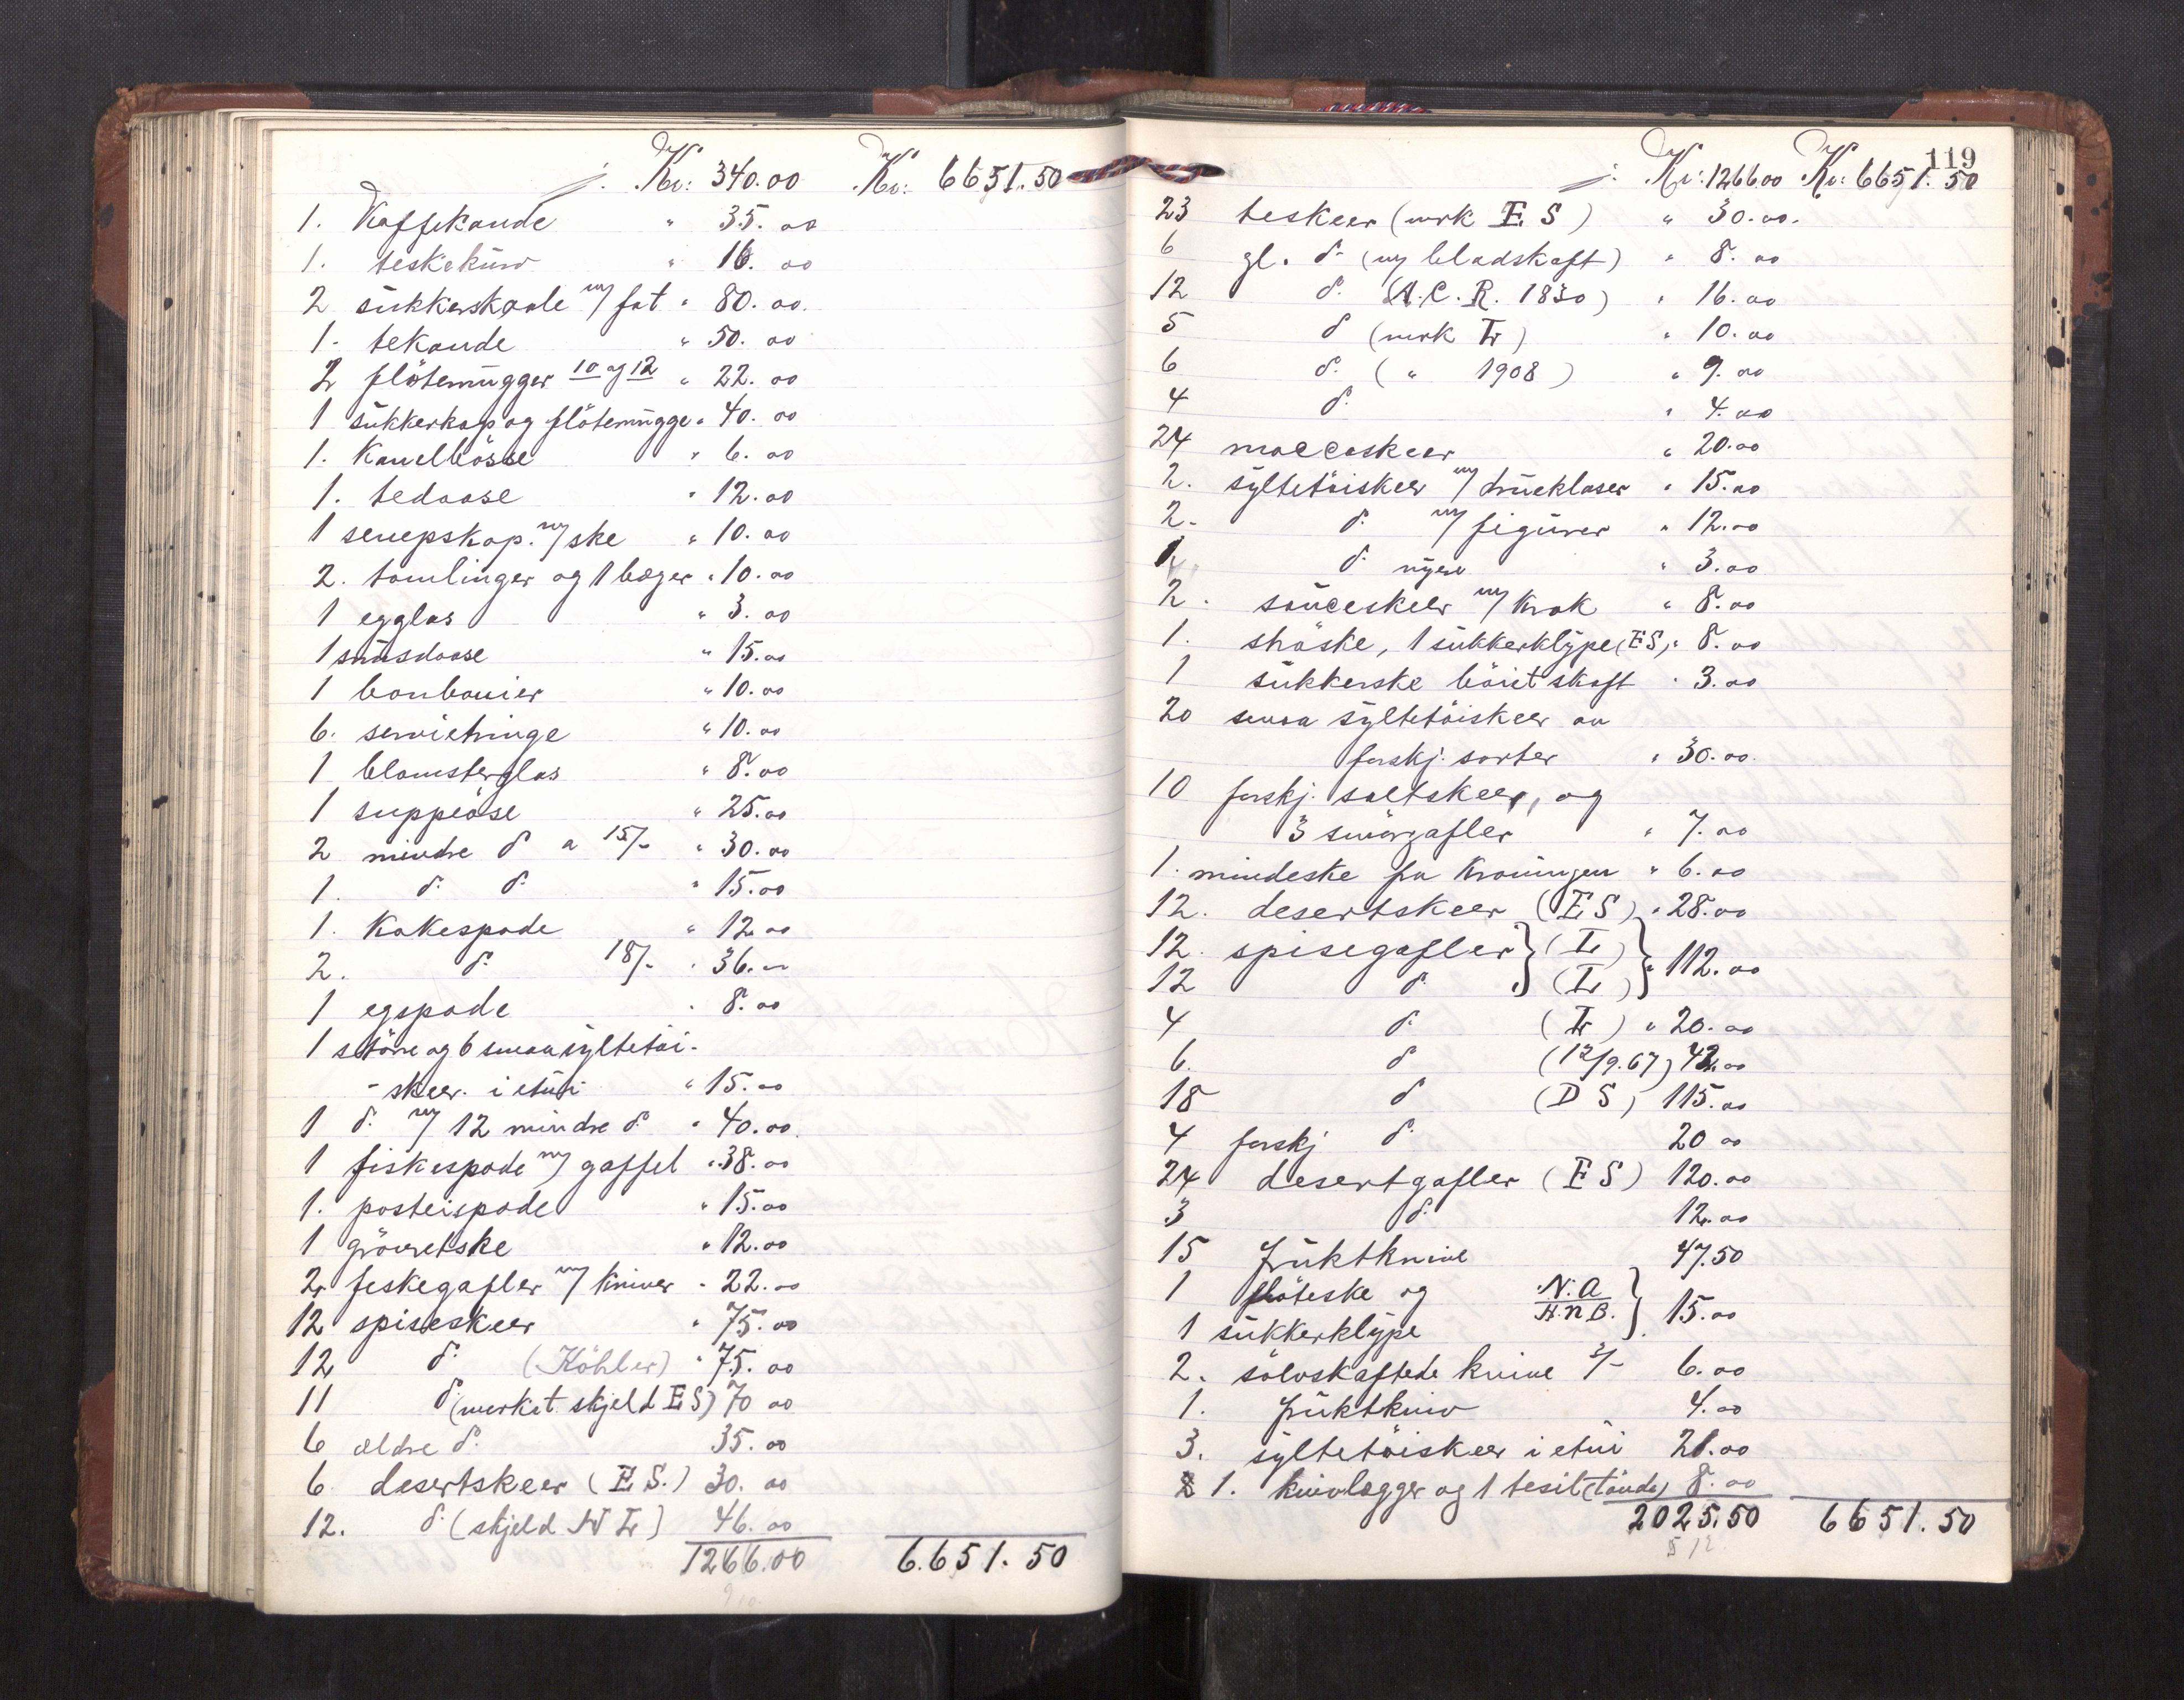 Kr: 340.00 Kr: 6651.50
1. Kaffekande " 35.00
1. teskekurv " 16.00
2 sukkerskaale m/ fat " 80.00.
1. tekande " 50.00
2 flötemugger 10 og 12 " 22.00
1 sukkerkop og flötemugge " 40.00
1. Kanelbösse " 6.00
1. tedaase " 12.00
1 senepskop. m/ ske " 10.00
2. tomlinger og 1 bæger " 10.00
1 egglas " 3.00
1 snusdaase " 15.00
1 bonbonier " 10.00
6. servietringe " 10.00
1 blomsterglas " 8.00
1 suppeöse " 25.00
2 mindre do a 15/- " 30.00
1. do do " 15.00
1. Kakespade " 12.00
2. do 18/- " 36.00
1 egspade " 8.00
1 större og 6 smaa syltetöi-
- skeer. i etui " 15.00
1 do m/ 12 mindre do " 40.00.
1 fiskespade m/ gaffel " 38.00
1. posteispade " 15.00
1 grövretske " 12.00
2 feskegafler m/ kniver " 22.00
12 spiseskeer " 75.00
12 do (Köhler) " 75.00
11 do (merket skjeld E S) 70 00
6 ældre do 35.00
6 desertskeer (E S.) 30.00
12. do (skjeld N L) 46.00
1266.00 6.651.50
119
Kr: 1266 00 Kr: 6651.50
23 teskeer (mrk E S) " 30.00.
6 gl. do (m/ bladskaft) " 8.00
12 do (A.C.R. 1830) " 16.00
5 do (mrk Tr) " 10.00
6 do ( " 1908) " 9.00
4 do " 4.00
24 moccaskeer " 20.00
2. syltetöiskeer m/ drueklaser " 15.00
2. do m/ figurer " 12.00
1 do nyere " 3.00
2. sauceskeer m/ krok " 8.00
1. ströske, 1 sukkerklype (E S) " 8.00
1 sukkerske böiet skaft " 3.00
20 smaa syltetöiskeer av
forskj. sorter " 30.00.
10 forskj. saltskeer, og
3 smörgafler " 7.00
1. mindeske fra Kroningen " 6.00
12. desertskeer (E S) " 28.00
12. spisegafler } (L) }
12 do } (L) } " 112.00
4 do (Tr) " 20.00
6. do (12/9.67) 42.00
18 do (D S) 115.00
4 forskj do 20 00
24 desertgafler (E S) 120.00
3 do 12.00
15 fruktknive 47.50
1 flöteske og N.A }
1 sukkerklype H.n B. } 15.00
2. sölvskaftede knive 3/- 6.00
1. fruktkniv 4.00
3. syltetöiskeer i etui 21.00
1. knivlægger og 1 tesil (tönde) 8.00
2025.50 6651.50